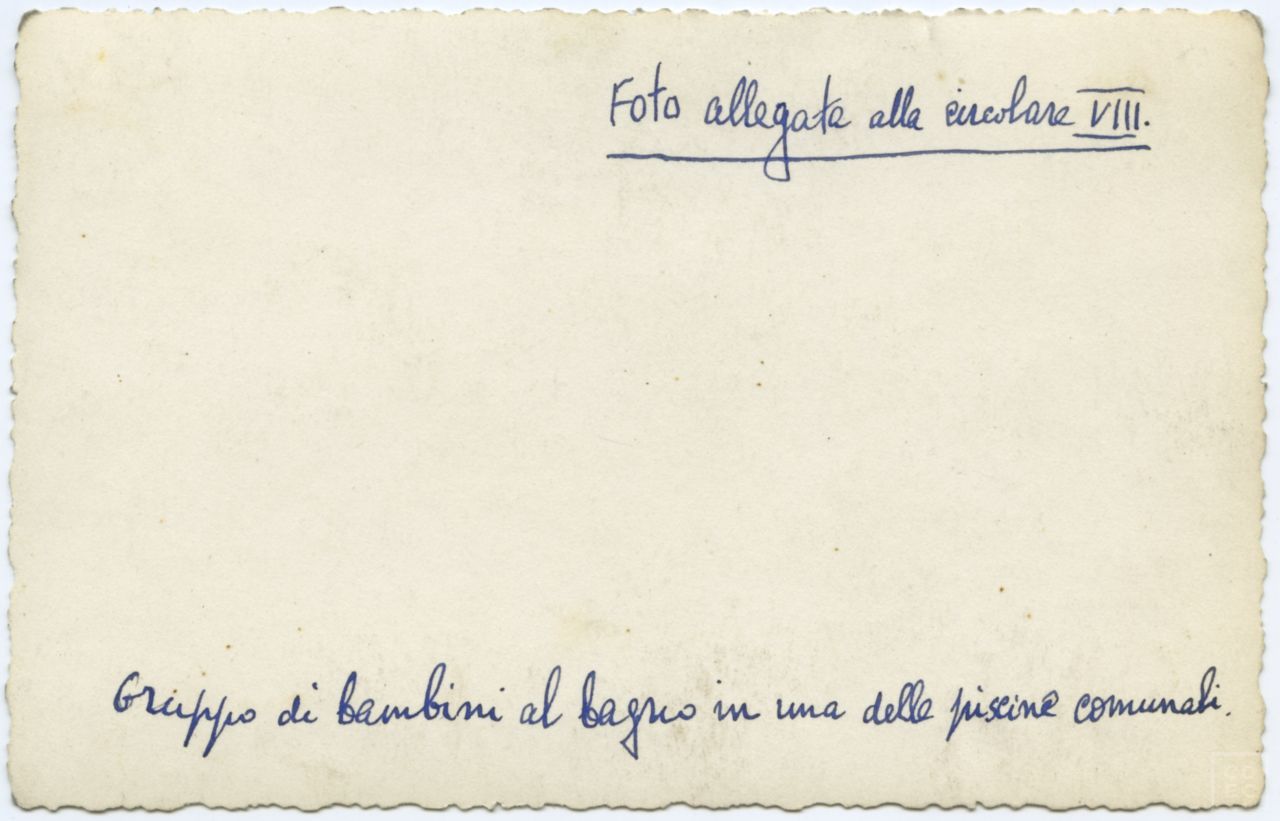 Foto allegata alla circolare VIII.
Gruppo di bambini al bagno in una delle piscine comunali.